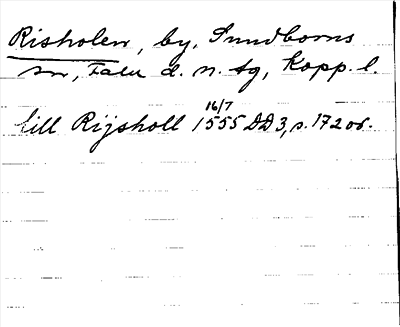 Risholen, by, Sundborns
sn, Falu d. n. tg, Kopp. l.
till Rijsholl 16/7 1555 DD 3, s. 172 or.